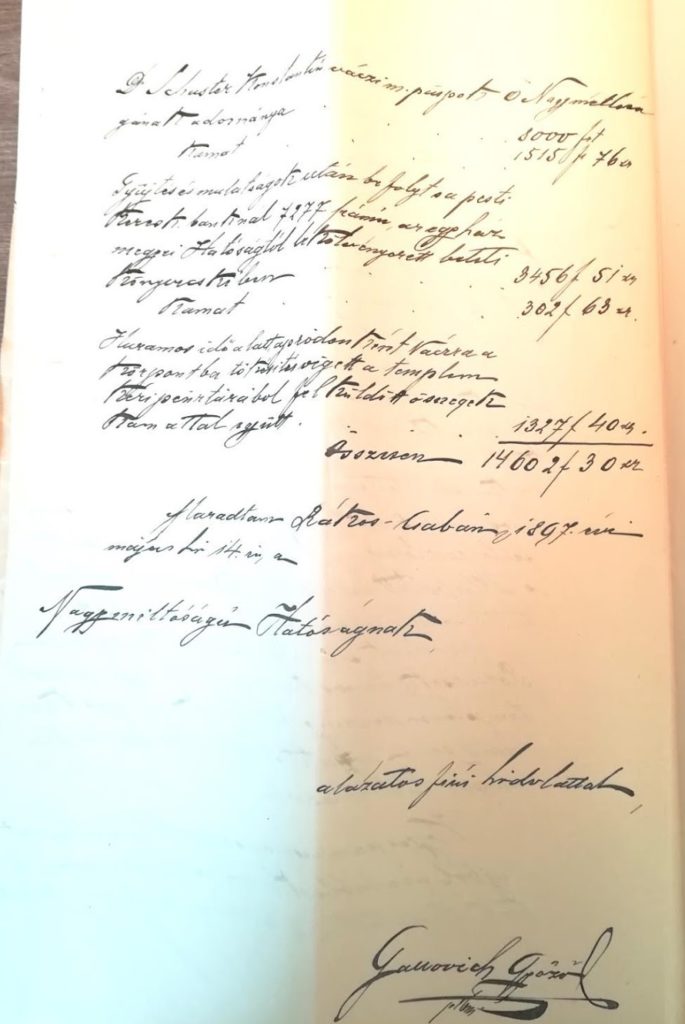 Dr Schuster Konstantin váczi m. püspök Ő Nagyméltósá
gának adománya . . . 8000 frt
Kamat . . . 1515 f 76 xr
Gyűjtés és mulatságok után befolyt s a pesti
Keresk. banknál 7277 számú, az egyház
megyei Hatóságtól lekötvényezett betéti
könyvecskében . . . 3456 f 51 xr
Kamat . . . 302 f 63 xr.
Hazamos idő alatt aprodonként Váczra a
központba tőkésítés végett a templom
kézi pénztárából felküldött összegek
kamattal együtt . . . 1327 f 40 xr.
Összesen 14602 f 30 xr
Maradtam Rákos-Csabán, 1897. évi
május hó 14. én, a
Nagyméltóságú Hatóságnak,
alázatos fiúi hódolattal,
Gallovich Győző
plbnos